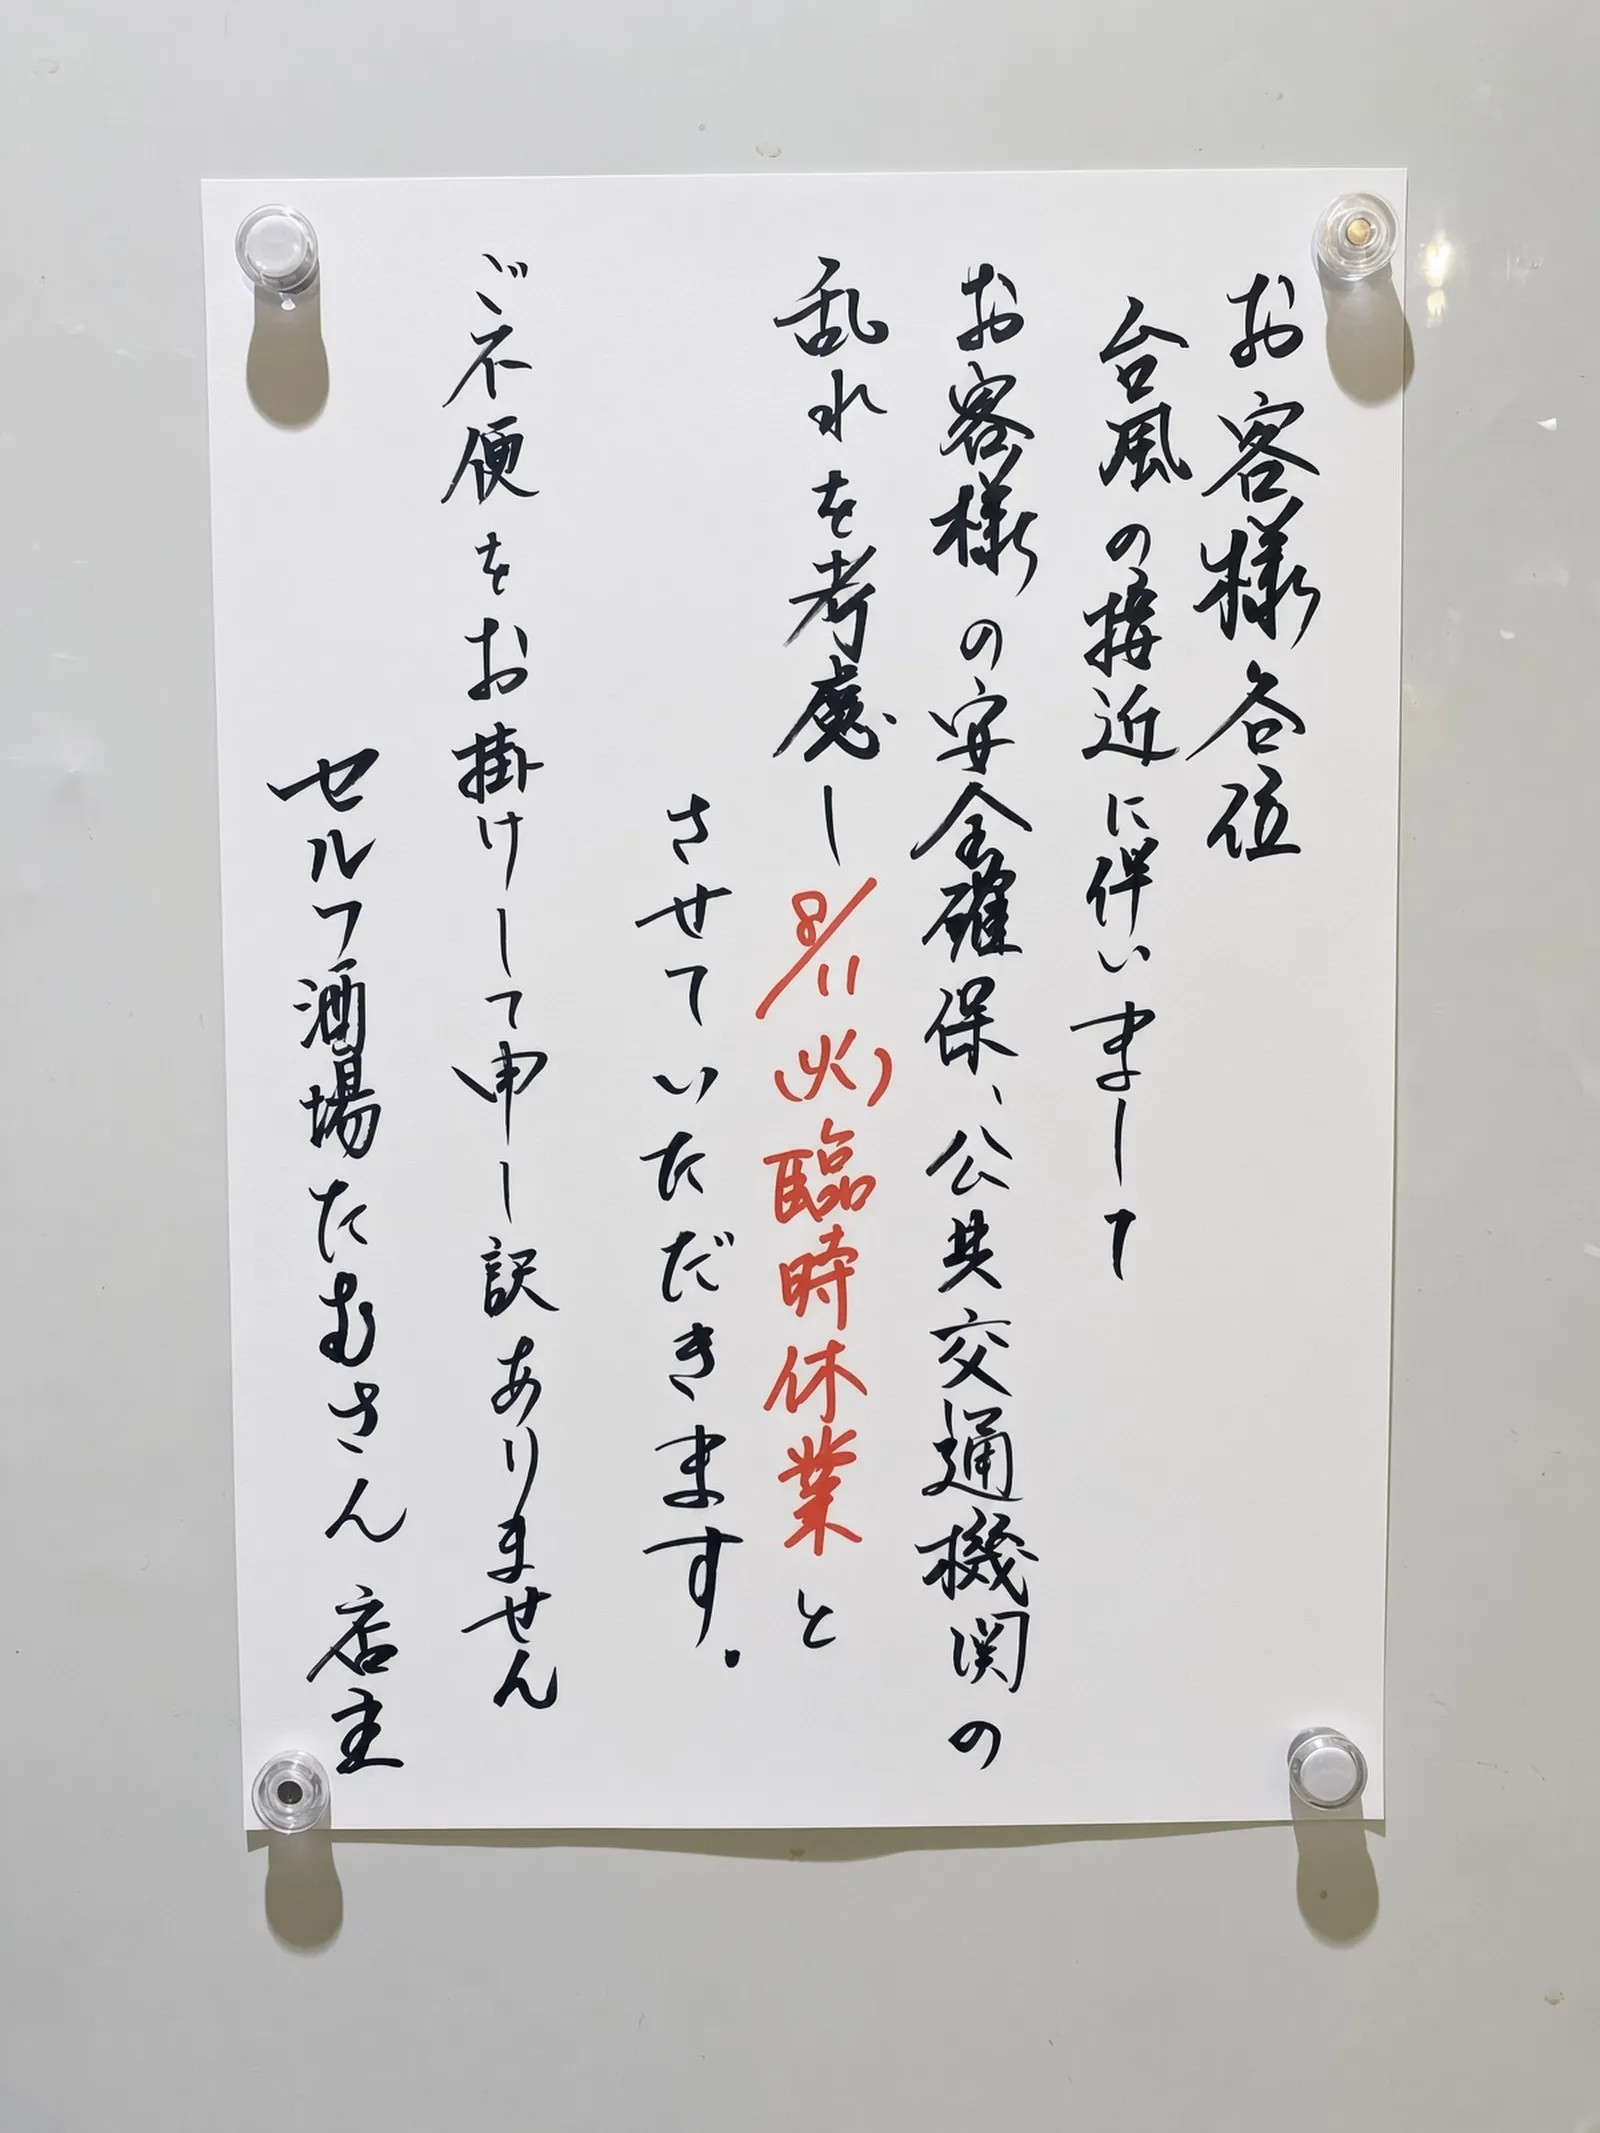 お客様各位
台風の接近に伴いまして
お客様の安全確保、公共交通機関の
乱れを考慮し8/11(火)臨時休業と
させていただきます.
ご不便をお掛けして申し訳ありません
セルフ酒場たむさん 店主